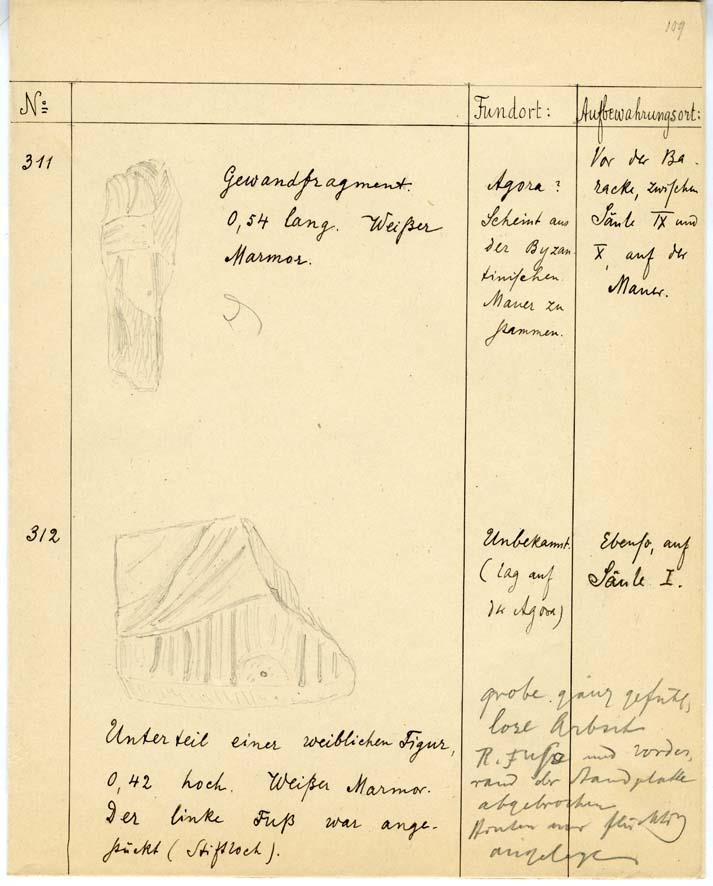 109
No: Fundort: Aufbewahrungsort:
311
Gewandfragment.
0,54 lang. Weißer
Marmor.
Agora?
Scheint aus
der Byzan-
tinischen
Mauer zu
stammen.
Vor der Ba-
racke, zwischen
Säule IX und
X, auf der
Mauer.
312
Unterteil einer weiblichen Figur,
0,42 hoch. Weißer Marmor.
Der linke Fuß war ange-
stückt (Stiftloch).
Unbekannt.
(lag auf
der Agora)
Ebenso, auf
Säule I.
grobe ganz gefühl,
lose Arbeit
R. Fuß und vorder,
rand der Standplatte
abgebrochen
Hinten nur flüchtig
angelegt